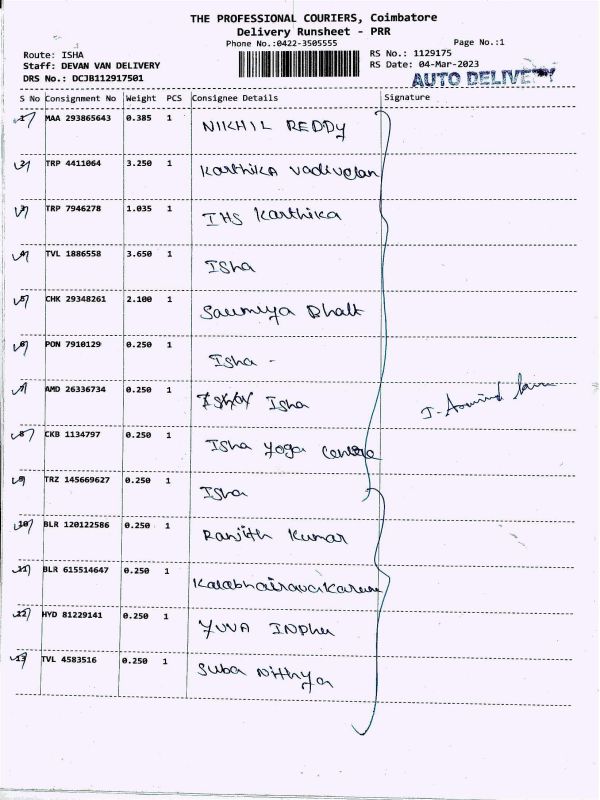 THE PROFESSIONAL COURIERS, Coimbatore
Delivery Runsheet - PRR
Phone No.:0422-3505555
Page No.:1
Route: ISHA
RS No.: 1129175
Staff: DEVAN VAN DELIVERY
RS Date: 04-Mar-2023
DRS No.: DCJB112917501
AUTO DELIVERY
S No Consignment No Weight PCS Consignee Details Signature
1 MAA 293865643 0.385 1 NIKHIL REDDY
2 TRP 4411064 3.250 1 Karthika Vadivelan
3 TRP 7946278 1.035 1 IHS Karthika
4 TVL 1886558 3.650 1 Isha
5 CHK 29348261 2.100 1 Saumiya Bhatt
6 PON 7910129 0.250 1 Isha -
7 AMD 26336734 0.250 1 Isha
8 CKB 1134797 0.250 1 Isha Yoga Centre
9 TRZ 145669627 0.250 1 Isha
10 BLR 120122586 0.250 1 Ranjith Kumar
11 BLR 615514647 0.250 1
12 HYD 81229141 0.250 1 YUVA
13 TVL 4583516 0.250 1 Suba Nithya